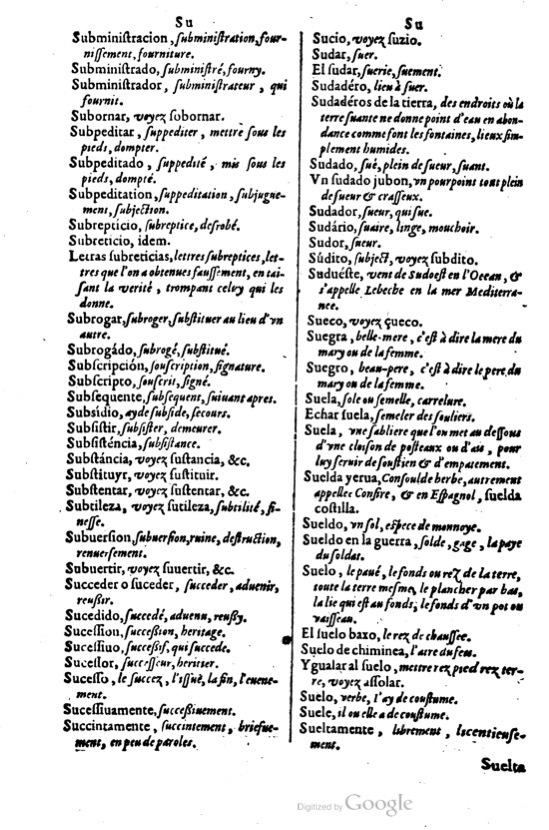 Su
Subministracion, ſubminiſtration, four-
niſſement, fourniture.
Subminiſtrado, ſubminiſtré, fourny.
Subminiſtrador, ſubminiſtrateur, qui
fournit.
Subornar, voyez ſobornar.
Subpeditar, ſuppediter, mettre ſous les
pieds, dompter.
Subpeditado, ſuppedité, mis ſous les
pieds, dompté.
Subpeditation, ſuppeditation, ſubjugue-
ment, ſubjection.
Subrepticio, ſubreptice, deſrobé.
Subreticio, idem.
Letras ſubreticias, lettres ſubreptices, let-
tres que l'on a obtenues fauſſement, en tai-
ſant la verité, trompant celuy qui les
donne.
Subrogar, ſubroger, ſubſtituer au lieu d'vn
autre.
Subrogádo, ſubrogé, ſubſtitué.
Subſcripción, ſouſcription, ſignature.
Subſcripto, ſouſcrit, ſigné.
Subſequente, ſubſequent, ſuiuant apres.
Subſidio, ayde ſubſide, ſecours.
Subſiſtir, ſubſiſter, demeurer.
Subſiſténcia, ſubſiſtance.
Subſtáncia, voyez ſustancia, &c.
Subſtituyr, voyez ſuſtituir.
Subſtentar, voyez ſuſtentar, &c.
Subtileza, voyez ſutileza, ſubtilité, fi-
neſſe.
Subuerſion, ſubuerſion, ruine, deſtruction,
renuerſement.
Subuertir, voyez ſuuertir, &c.
Succeder o ſuceder, ſucceder, aduenir,
reüſſir.
Sucedido, ſuccedé, aduenu, reuſſy.
Suceſſion, ſucceſſion, heritage.
Suceſſiuo, ſucceſſif, qui ſuccede.
Suceſſor, ſucceſſeur, heritier.
Suceſſo, le ſuccez, l'iſſuë, la fin, l'euene-
ment.
Suceſſiuamente, ſucceſſiuement.
Succintamente, ſuccintement, briefue-
ment, en peu de paroles.
Su
Sucio, voyez ſuzio.
Sudar, ſuer.
El ſudar, ſuerie, ſuement.
Sudadéro, lieu à ſuer.
Sudadéros de la tierra, des endroits où la
terre ſuante ne donne point d'eau en abon-
dance comme font les fontaines, lieux ſim-
plement humides.
Sudado, ſué, plein de ſueur, ſuant.
Vn ſudado jubon, vn pourpoint tout plein
de ſueur & craſſeux.
Sudador, ſueur, qui ſue.
Sudário, ſuaire, linge, mouchoir.
Sudor, ſueur.
Súdito, ſubject, voyez ſubdito.
Suduéſte, vent de Sudoeſt en l'Ocean, &
s'appelle Lebeche en la mer Mediterra-
nee.
Sueco, voyez çueco.
Suegra, belle-mere, c'eſt à dire la mere du
mary ou de la femme.
Suegro, beau-pere, c'eſt à dire le pere du
mary ou de la femme.
Suela, ſole ou ſemelle, carrelure.
Echar ſuela, ſemeler des ſouliers.
Suela, vne ſabliere que l'on met au deſſous
d'vne cloiſon de poſteaux ou d'ais, pour
luy ſeruir de ſouſtien & d'empatement.
Suelda yerua, Conſoulde herbe, autrement
appellee Confire, & en Eſpagnol, ſuelda
coſtilla.
Sueldo, vn ſol, eſpece de monnoye.
Sueldo en la guerra, ſolde, gage, la paye
du ſoldat.
Suelo, le paué, le fonds ou rez de la terre,
toute la terre meſme, le plancher par bas,
la lie qui eſt au fonds, le fonds d'vn pot ou
vaiſſeau.
El ſuelo baxo, le rez de chauſſee.
Suelo de chiminea, l'aire du feu.
Ygualar al ſuelo, mettre rez pied rez ter-
re, voyez aſſolar.
Suelo, verbe, i'ay de couſtume.
Suele, il ou elle a de couſtume.
Sueltamente, librement, licentieuſe-
ment.
Suelta
Digitized by Google